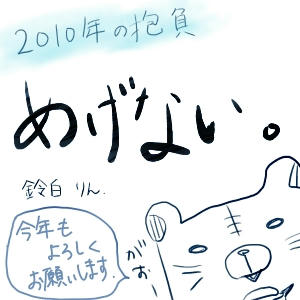 2010年の抱負
めげない。
鈴白 りん.
今年も
よろしく
お願いします.
がお